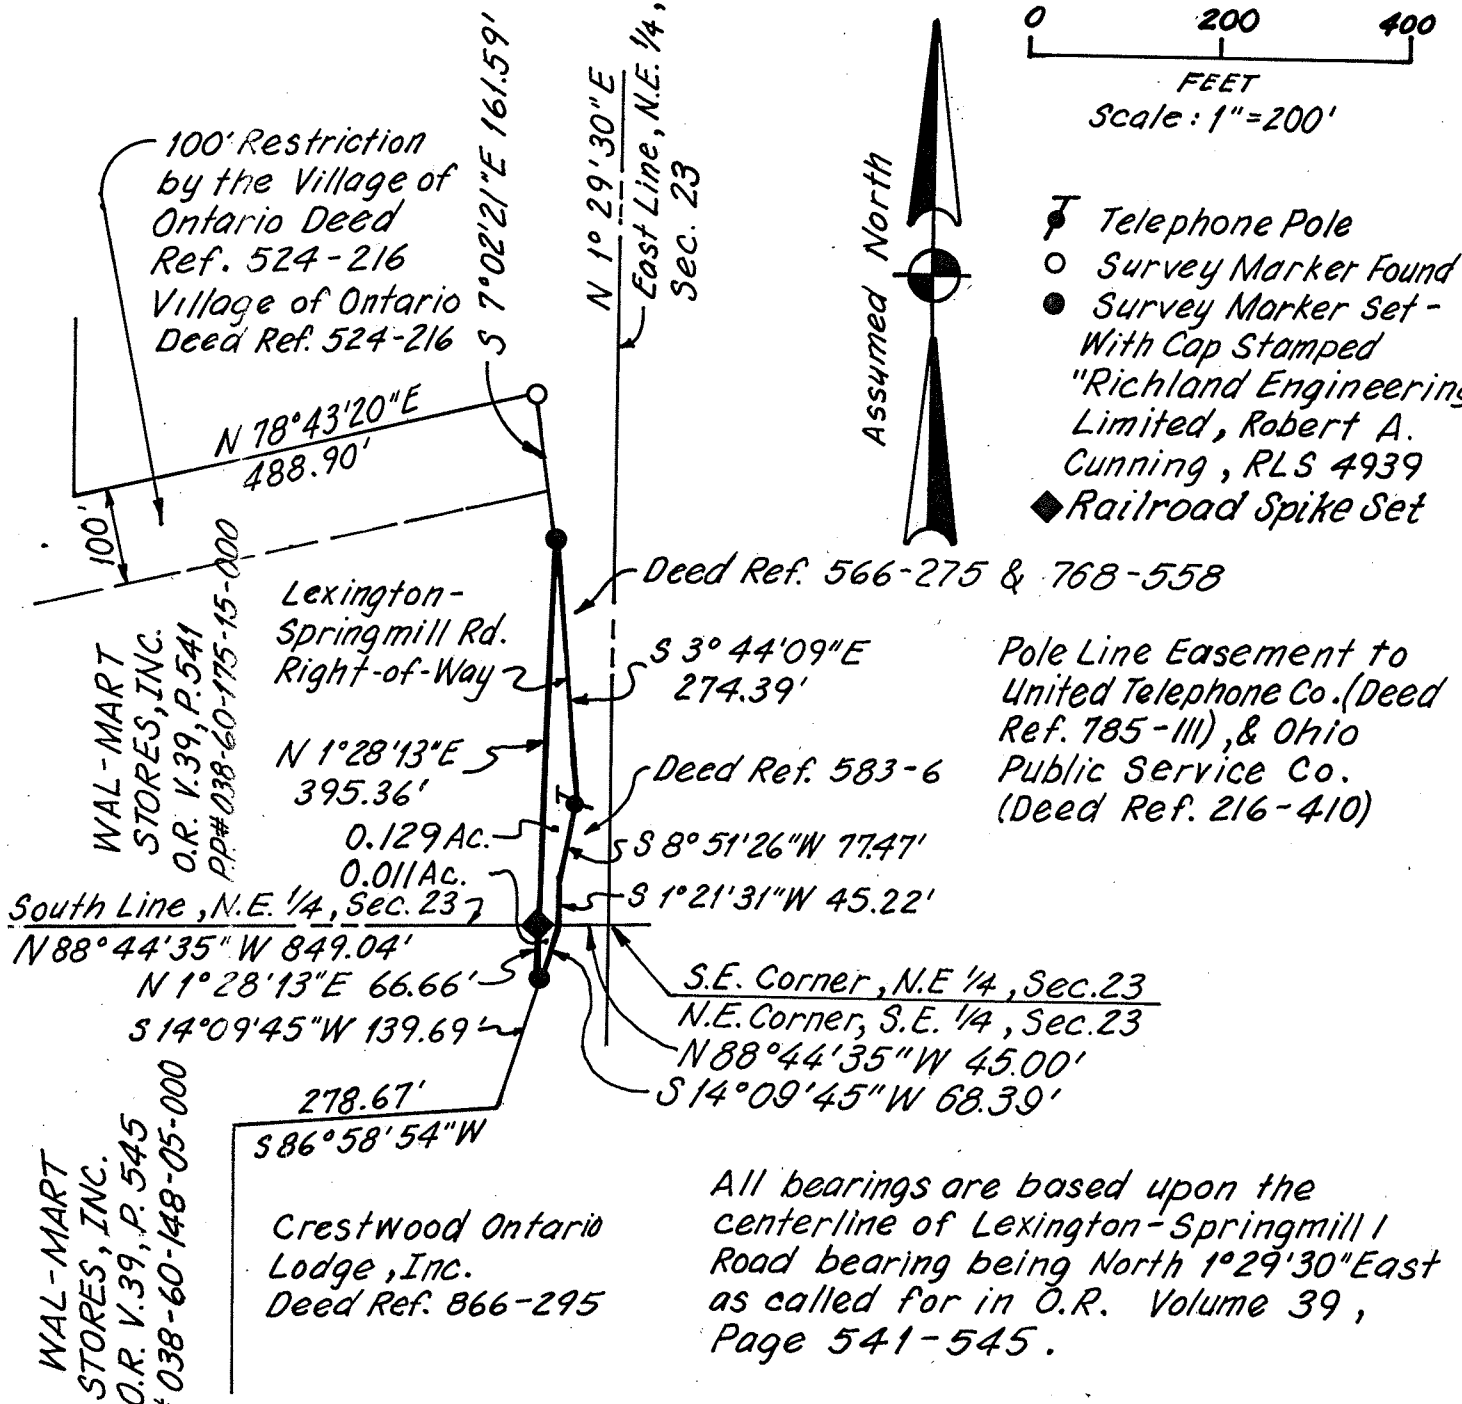 0 200 400
FEET
Scale: 1"=200'
Assumed North
Telephone Pole
Survey Marker Found
Survey Marker Set-
With Cap Stamped
"Richland Engineering
Limited, Robert A.
Cunning, RLS 4939
Railroad Spike Set
100' Restriction
by the Village of
Ontario Deed
Ref. 524-216
Village of Ontario
Deed Ref. 524-216
S 7°02'21"E 161.59'
N 1°29'30"E
East Line, N.E. 1/4,
Sec. 23
N 78°43'20"E
488.90'
100'
WAL-MART
STORES, INC.
O.R. V.39, P.541
P.P.#038-60-175-15-000
Lexington-
Springmill Rd.
Right-of-Way
Deed Ref. 566-275 & 768-558
S 3°44'09"E
274.39'
Pole Line Easement to
United Telephone Co. (Deed
Ref. 785-111), & Ohio
Public Service Co.
(Deed Ref. 216-410)
N 1°28'13"E
395.36'
Deed Ref. 583-6
0.129 Ac.
S 8°51'26"W 77.47'
0.011 Ac.
S 1°21'31"W 45.22'
South Line, N.E. 1/4, Sec. 23
N 88°44'35"W 849.04'
N 1°28'13"E 66.66'
S 14°09'45"W 139.69'
S.E. Corner, N.E 1/4, Sec.23
N.E. Corner, S.E. 1/4, Sec.23
N 88°44'35"W 45.00'
S 14°09'45"W 68.39'
278.67'
S 86°58'54"W
WAL-MART
STORES, INC.
O.R. V.39, P. 545
038-60-148-05-000
Crestwood Ontario
Lodge, Inc.
Deed Ref. 866-295
All bearings are based upon the
centerline of Lexington-Springmill
Road bearing being North 1°29'30"East
as called for in O.R. Volume 39,
Page 541-545.